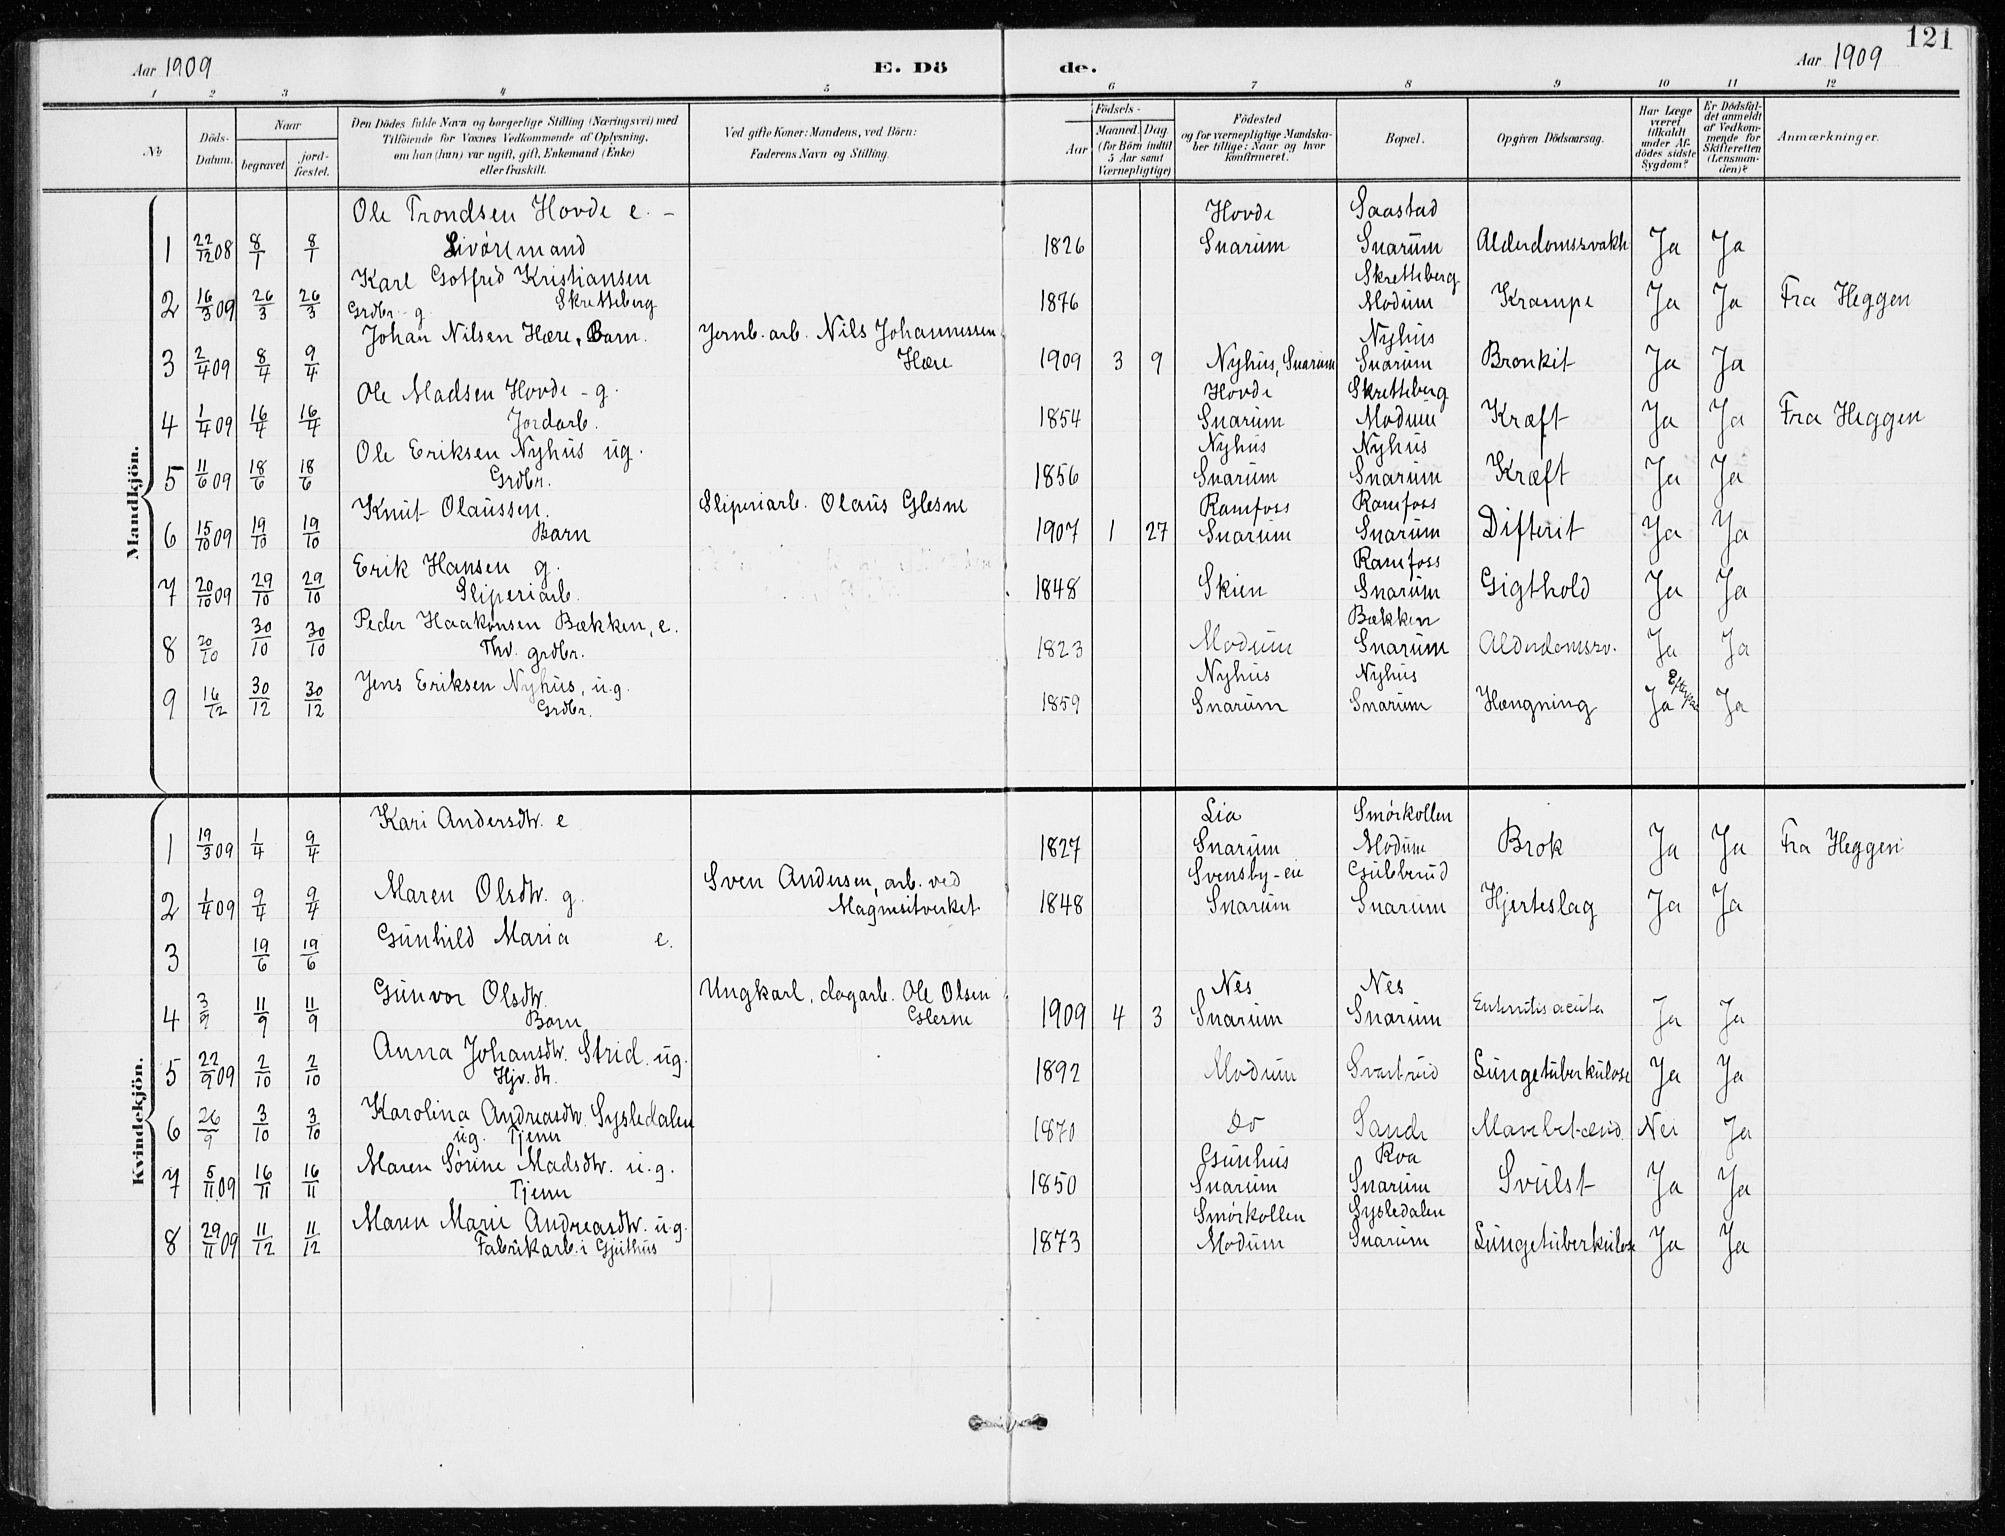 121
Aar 1909
E. Dö
de.
Aar 1909
1 2 3 4 5 6 7 8 9 10 11 12
No
Döds-Datum.
Naar
begravet
jord-fæstet.
Den Dödes fulde Navn og borgerlige Stilling (Næringsvei) med
Tilföiende for Voxnes Vedkommende af Oplysning,
om han (hun) var ugift, gift, Enkemand (Enke)
eller fraskilt.
Ved gifte Koner: Mandens, ved Börn:
Faderens Navn og Stilling.
Födsels-
Aar
Maaned. Dag
(for Börn indtil
5 Aar samt
Værnepligtige)
Födested
og for værnepligtige Mandska-
ber tillige: Naar og hvor
konfirmeret.
Bopæl.
Opgiven Dödsaarsag.
Har Læge
været
tilkaldt
under Af-
dödes sidste
Sygdom?
Er Dödsfal-
det anmeldt
af Vedkom-
mende for
Skifteretten
(Lensman-
den)?
Anmærkninger.
Mandkjön.
Ole Trondsen Hovde e. - Hovde Saastad
1 22/12 08 8/1 8/1 Livøremand 1826 Snarum Snarum Alderdomssvakh Ja Ja
Karl Gotfred Kristiansen Skretteberg
2 16/3 09 26/3 26/3 Grdbr. g. Skretteberg 1876 Modum Krampe Ja Ja Fra Heggen
Johan Nilsen Hære, Barn. Jernb. arb. Nils Johannessen Nyhus
3 2/4 09 8/4 9/4 Hære 1909 3 9 Nyhus, Snarum Snarum Bronkit Ja Ja
Ole Madsen Hovde - g. Hovde Skretteberg
4 1/4 09 16/4 16/4 Jordarb. 1854 Snarum Modum Kræft Ja Ja Fra Heggen
Ole Eriksen Nyhus ug. Nyhus Nyhus
5 11/6 09 18/6 18/6 Grdbr. 1856 Snarum Snarum Kræft Ja Ja
Knut Olaussen. Sliperiarb. Olaus Glesne Ramfoss Ramfoss
6 15/10 09 19/10 19/10 Barn 1907 1 27 Snarum Snarum Difterit Ja Ja
Erik Hansen g. Ramfoss
7 20/10 09 29/10 29/10 Sliperiarb. 1848 Skien Snarum Gigthold Ja Ja
Peder Haakonsen Bækken, e. Bækken
8 20/10 30/10 30/10 Thv. grdbr. 1823 Modum Snarum Alderdomssv. Ja Ja
Jens Eriksen Nyhus, u.g. Nyhus Nyhus
9 16/12 30/12 30/12 Grdbr. 1859 Snarum Snarum Hængning Ja Ja
Kvindekjön.
Kari Andersdtr. e Lia Smørkollen
1 19/3 09 1/4 9/4 1827 Snarum Modum Brok Ja Ja Fra Heggen
Maren Olsdtr. g. Sven Andersen, arb. ved Svensby-eie Gubberud
2 1/4 09 9/4 9/4 Magnesitverket 1848 Snarum Snarum Hjerteslag Ja Ja
3 19/6 19/6 Gunhild Maria e.
Gunvor Olsdtr. Ungkarl, dagarb. Ole Olsen Nes Nes
4 3/9 11/9 11/9 Barn Glesne 1909 4 3 Snarum Snarum Enteritis acuta Ja Ja
Anna Johansdtr. Strid. ug.
5 22/9 09 2/10 2/10 Hjv. dtr. 1892 Modum Svartruid Lungetuberkulose Ja Ja
Karolina Andreasdtr. Sysledalen
6 26/9 3/10 3/10 ug. Tjener 1870 Do Sande Nei Ja
Maren Sørine Madsdtr. u.g. Gunhus Roa
7 5/11 09 16/11 16/11 Tjener 1850 Snarum Snarum Svulst Ja Ja
Maren Marie Andreasdtr. u.g. Smørkollen Sysledalen
8 29/11 09 11/12 11/12 Fabrikarb. i Gjethus 1873 Modum Snarum Lungetuberkulose Ja Ja